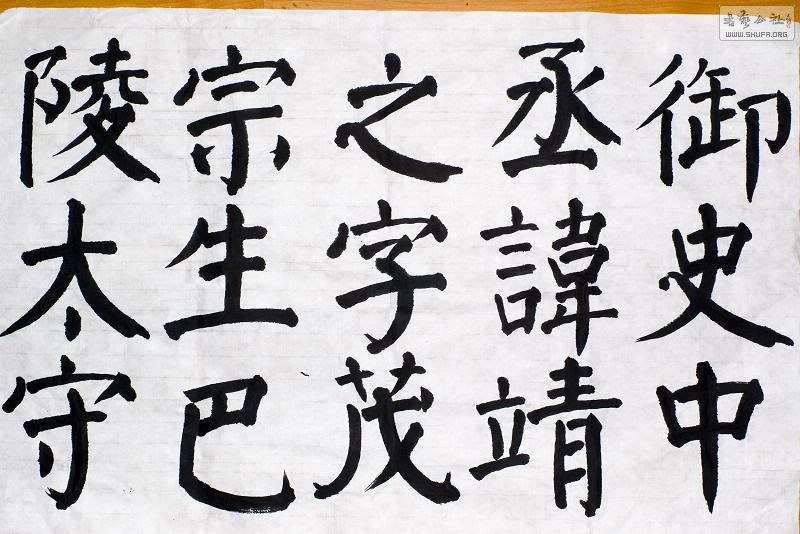 御史中
丞諱靖
之字茂
宗生巴
陵太守
書藝公社
WWW.SHUFA.ORG